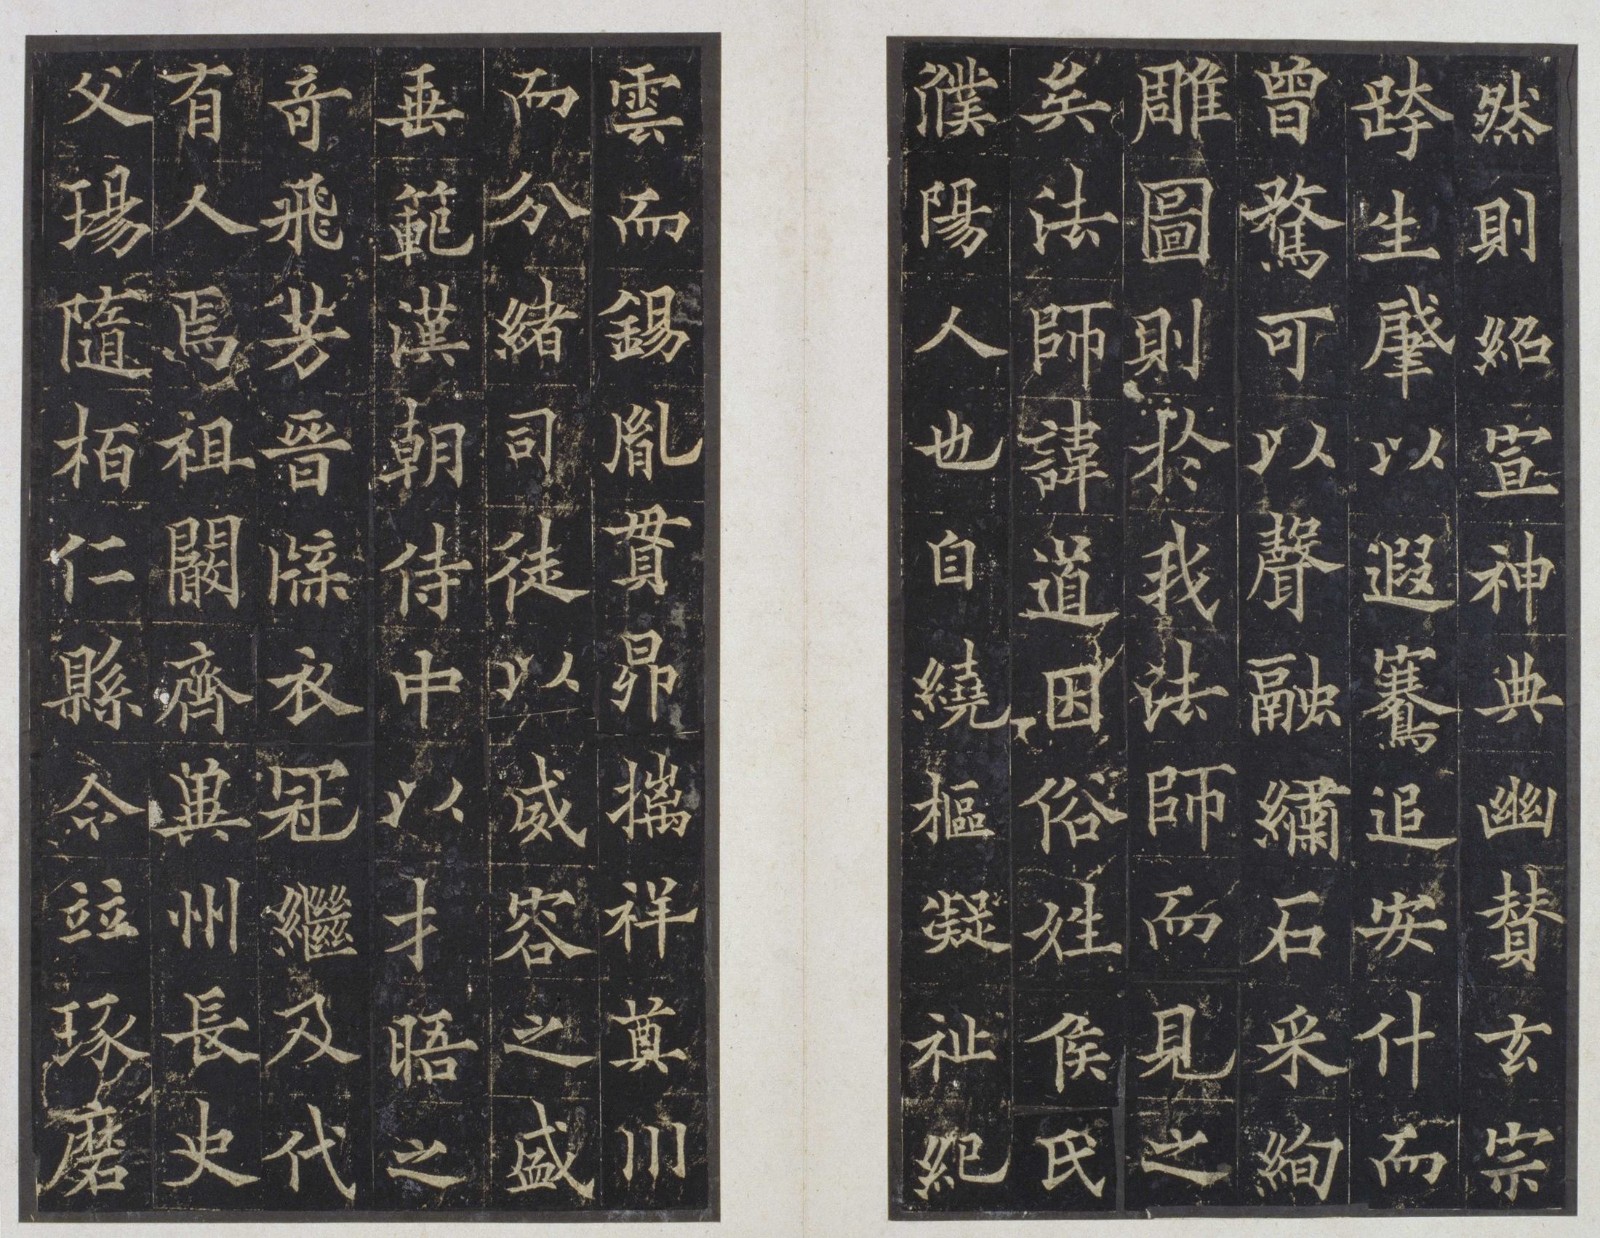 然則紹宣神典幽賛玄宗
跨生肇以遐騫追安什而
曾騖可以聲融繡石采絢
雕圖則於我法師而見之
矣法師諱道因俗姓侯氏
濮陽人也自繞樞凝祉紀
雲而錫胤貫昴摛祥奠川
而分緒司徒以威容之盛
垂範漢朝侍中以才晤之
竒飛芳晉牒衣冠繼及代
有人焉祖闞齊兾州長史
父瑒隨栢仁縣令竝琢磨